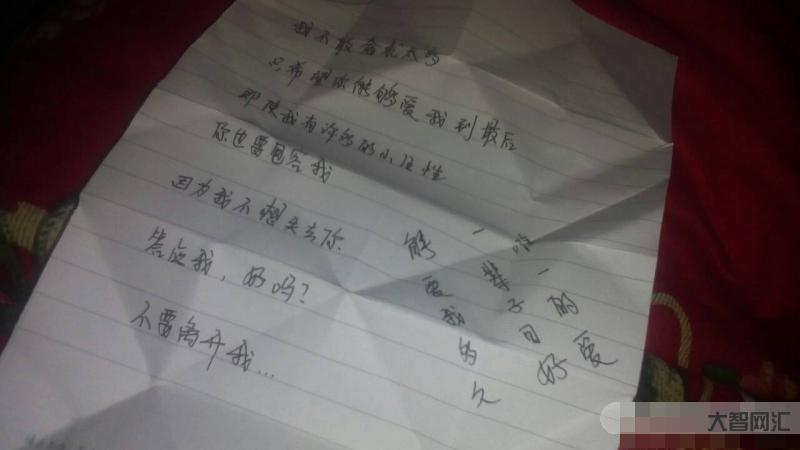 我不敢奢求太多
只希望你能够爱我到最后
即使我有许多的小任性
你也要包容我
因为我不想失去你
答应我，好吗？
不要离开我...
唯一的爱
一辈子可好
能爱我的
大智网汇